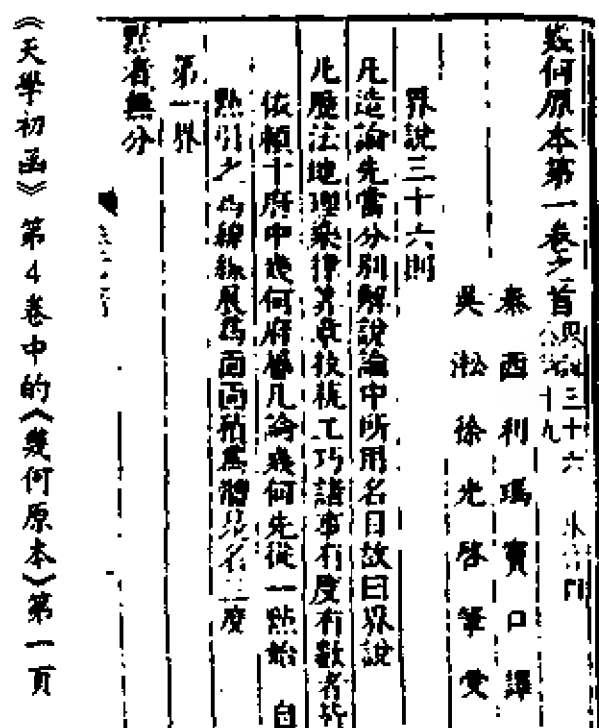 幾何原本第一卷之首 界說三十六 公論十九
泰西利瑪竇口譯
吳淞徐光啓筆受
界說三十六則
凡造論先當分別解說論中所用名目故曰界說
凡歷法地理樂律算章技藝工巧諸事有度有數者皆
依賴十府中幾何府屬凡論幾何先從一點始 自
點引之爲線線展爲面面積爲體是名三度
第一界
點者無分
《天學初函》第4卷中的《幾何原本》第一頁